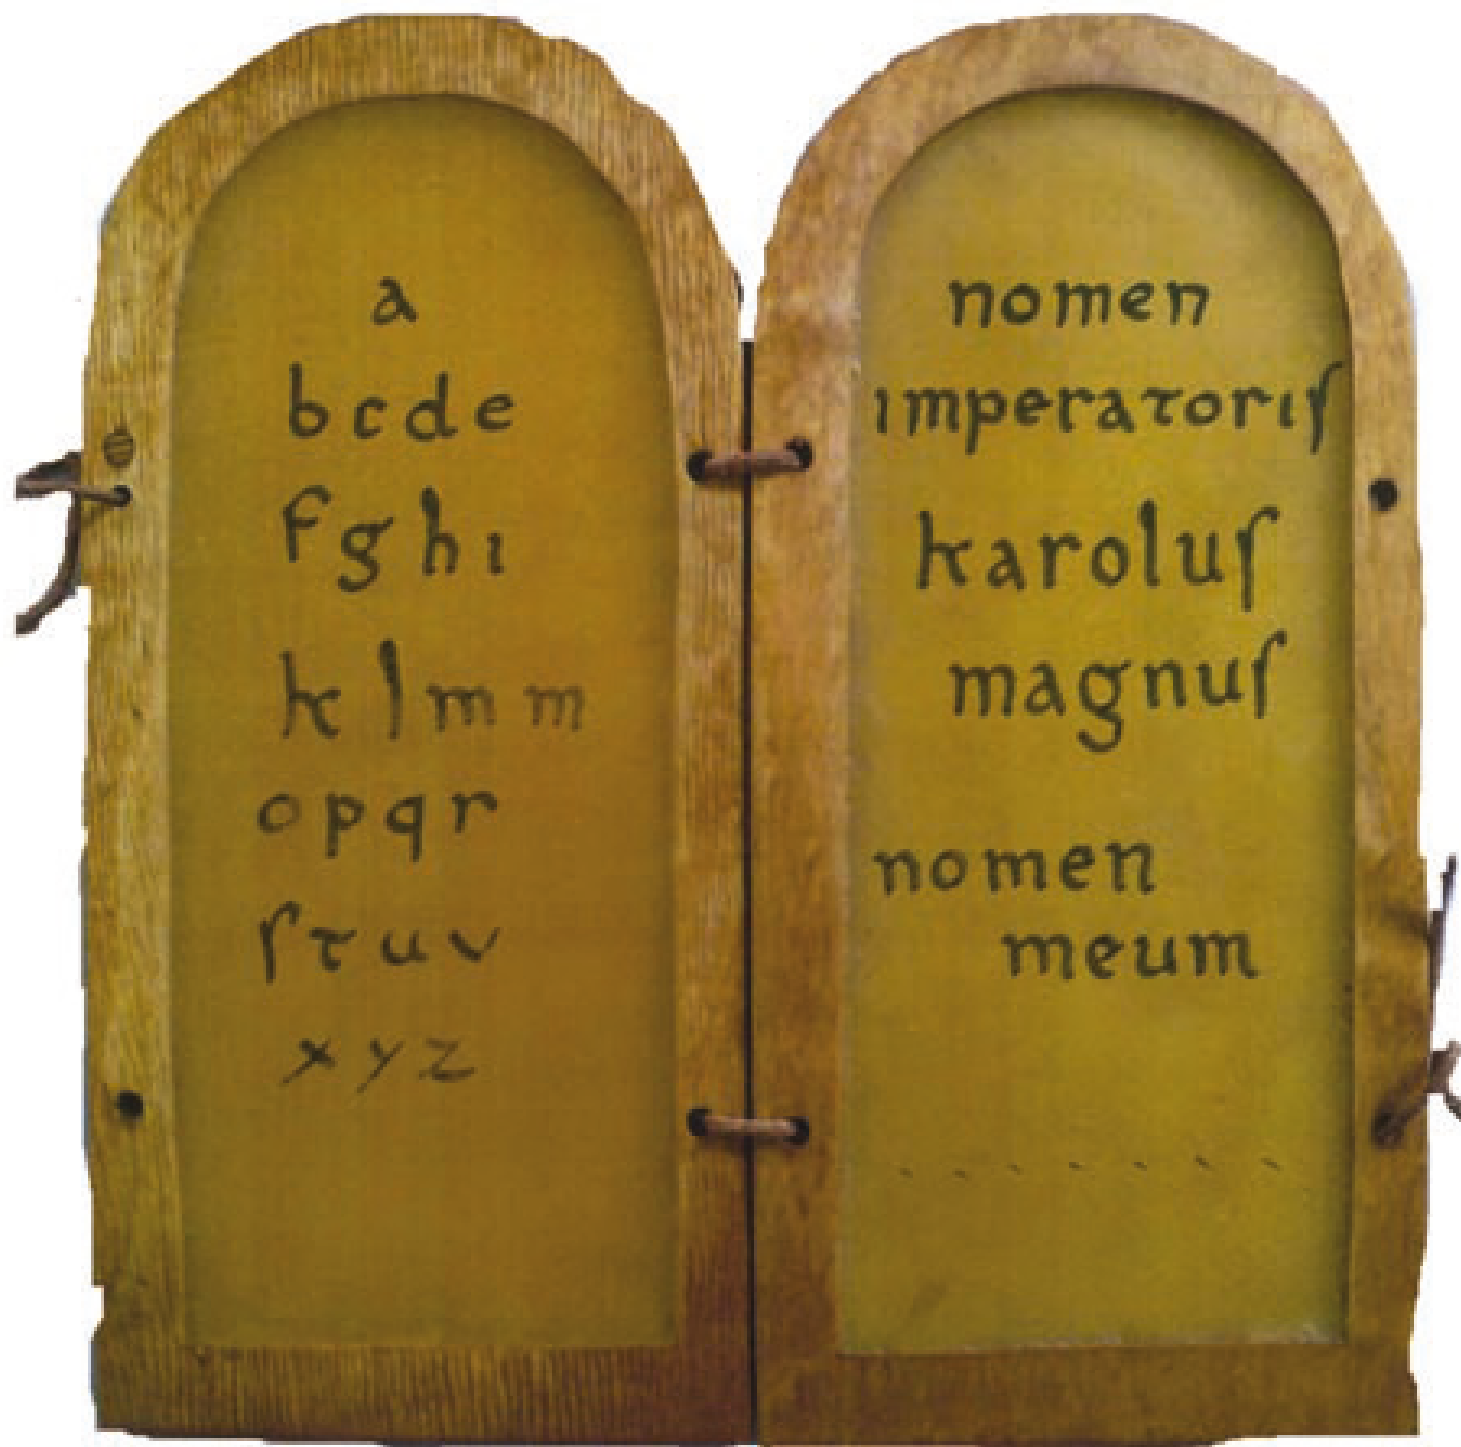 a
bcde
fghı
klmm
opqr
ſtuv
xyz
nomen
ımperatorıſ
karoluſ
magnuſ
nomen
meum